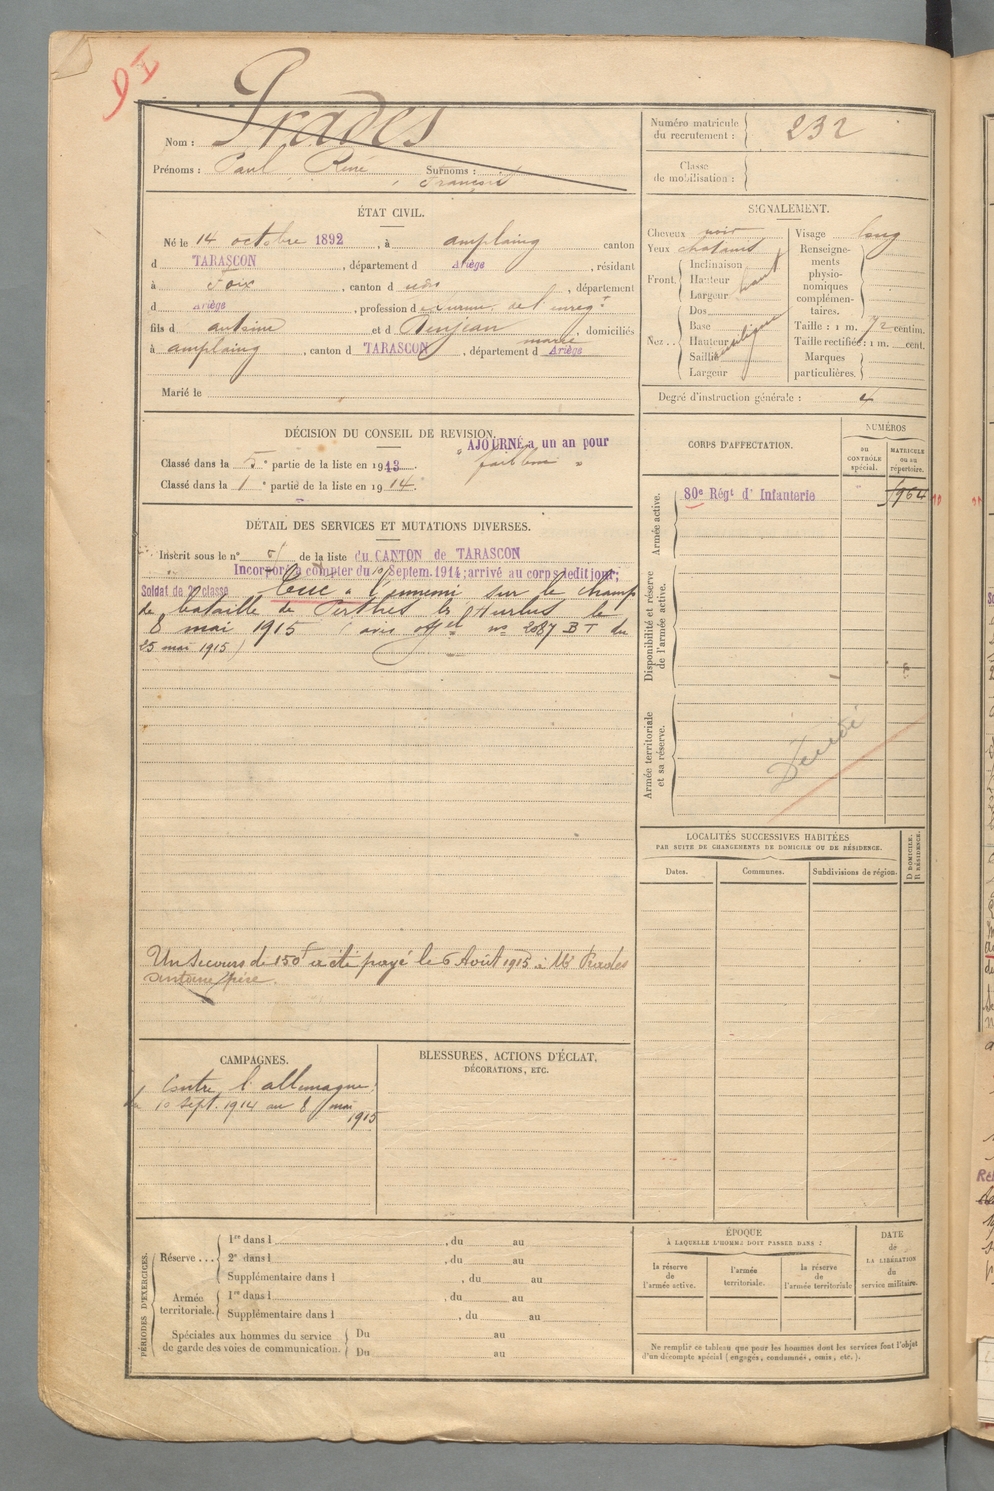 Prades
Nom :
Prénoms : Paul René François Surnoms :
Numéro matricule du recrutement : 232
Classe de mobilisation :
ÉTAT CIVIL.
Né le 14 octobre 1892, à amplaing canton
d TARASCON, département d Ariège, résidant
à Foix, canton d udo, département
d Ariège, profession d de l'enreg.t
fils d antoine et d marie, domiciliés
à amplaing, canton d TARASCON, département d Ariège
Marié le
SIGNALEMENT.
Cheveux noir
Yeux chatains
Front Inclinaison
Hauteur haut
Largeur
Nez.. Dos
Base
Hauteur
Saillie
Largeur
Visage long
Renseignements physionomiques complémentaires.
Taille : 1 m. 72 centim.
Taille rectifiée : 1 m. cent.
Marques particulières.
Degré d'instruction générale :
DÉCISION DU CONSEIL DE REVISION.
AJOURNÉ à un an pour
" faiblesse "
Classé dans la 5e partie de la liste en 1913.
Classé dans la 1e partie de la liste en 1914.
DÉTAIL DES SERVICES ET MUTATIONS DIVERSES.
Inscrit sous le n° de la liste du CANTON de TARASCON
Incorporé à compter du 10 Septem. 1914; arrivé au corps ledit jour;
Soldat de 2e classe Tué à l'ennemi sur le champ
de bataille de Perthes les Hurlus le
8 mai 1915 (avis offel no 2087 BT du
25 mai 1915)
Un secours de 150f a été payé le 6 Août 1915 à Mr Prades
Antoine père.
CORPS D'AFFECTATION.
NUMÉROS
au CONTRÔLE spécial.
MATRICULE ou au répertoire.
Armée active.
80e Régt d'Infanterie
Disponibilité et réserve de l'armée active.
Armée territoriale et sa réserve.
LOCALITÉS SUCCESSIVES HABITÉES
PAR SUITE DE CHANGEMENTS DE DOMICILE OU DE RÉSIDENCE.
Dates.
Communes.
Subdivisions de région.
D DOMICILE.
R RÉSIDENCE.
CAMPAGNES.
Contre l'allemagne
du 10 sept. 1914 au 8 mai
1915
BLESSURES, ACTIONS D'ÉCLAT,
DÉCORATIONS, ETC.
PÉRIODES D'EXERCICES.
Réserve... 1re dans l , du au
2e dans l , du au
Supplémentaire dans l , du au
Armée territoriale. 1re dans l , du au
Supplémentaire dans l , du au
Spéciales aux hommes du service de garde des voies de communication. Du au
Du au
ÉPOQUE
À LAQUELLE L'HOMME DOIT PASSER DANS :
la réserve de l'armée active.
l'armée territoriale.
la réserve de l'armée territoriale
DATE de LA LIBÉRATION du service militaire.
Ne remplir ce tableau que pour les hommes dont les services font l'objet
d'un décompte spécial (engagés, condamnés, omis, etc.).